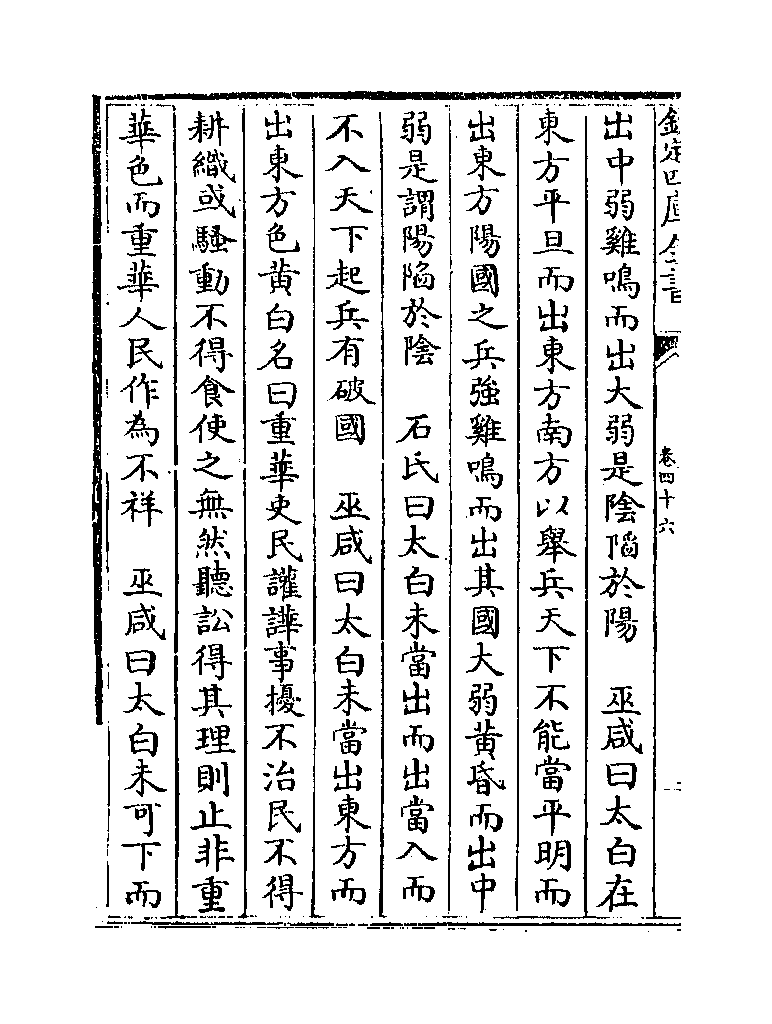 欽定四庫全書
卷四十六
出中弱雞鳴而出大弱是陰陷於陽　巫咸曰太白在
東方平旦而出東方南方以舉兵天下不能當平明而
出東方陽國之兵強雞鳴而出其國大弱黄昏而出中
弱是謂陽陷於陰　石氏曰太白未當出而出當入而
不入天下起兵有破國　巫咸曰太白未當出東方而
出東方色黄白名曰重華吏民讙譁事擾不治民不得
耕織或騷動不得食使之無然聽訟得其理則止非重
華色而重華人民作為不祥　巫咸曰太白未可下而